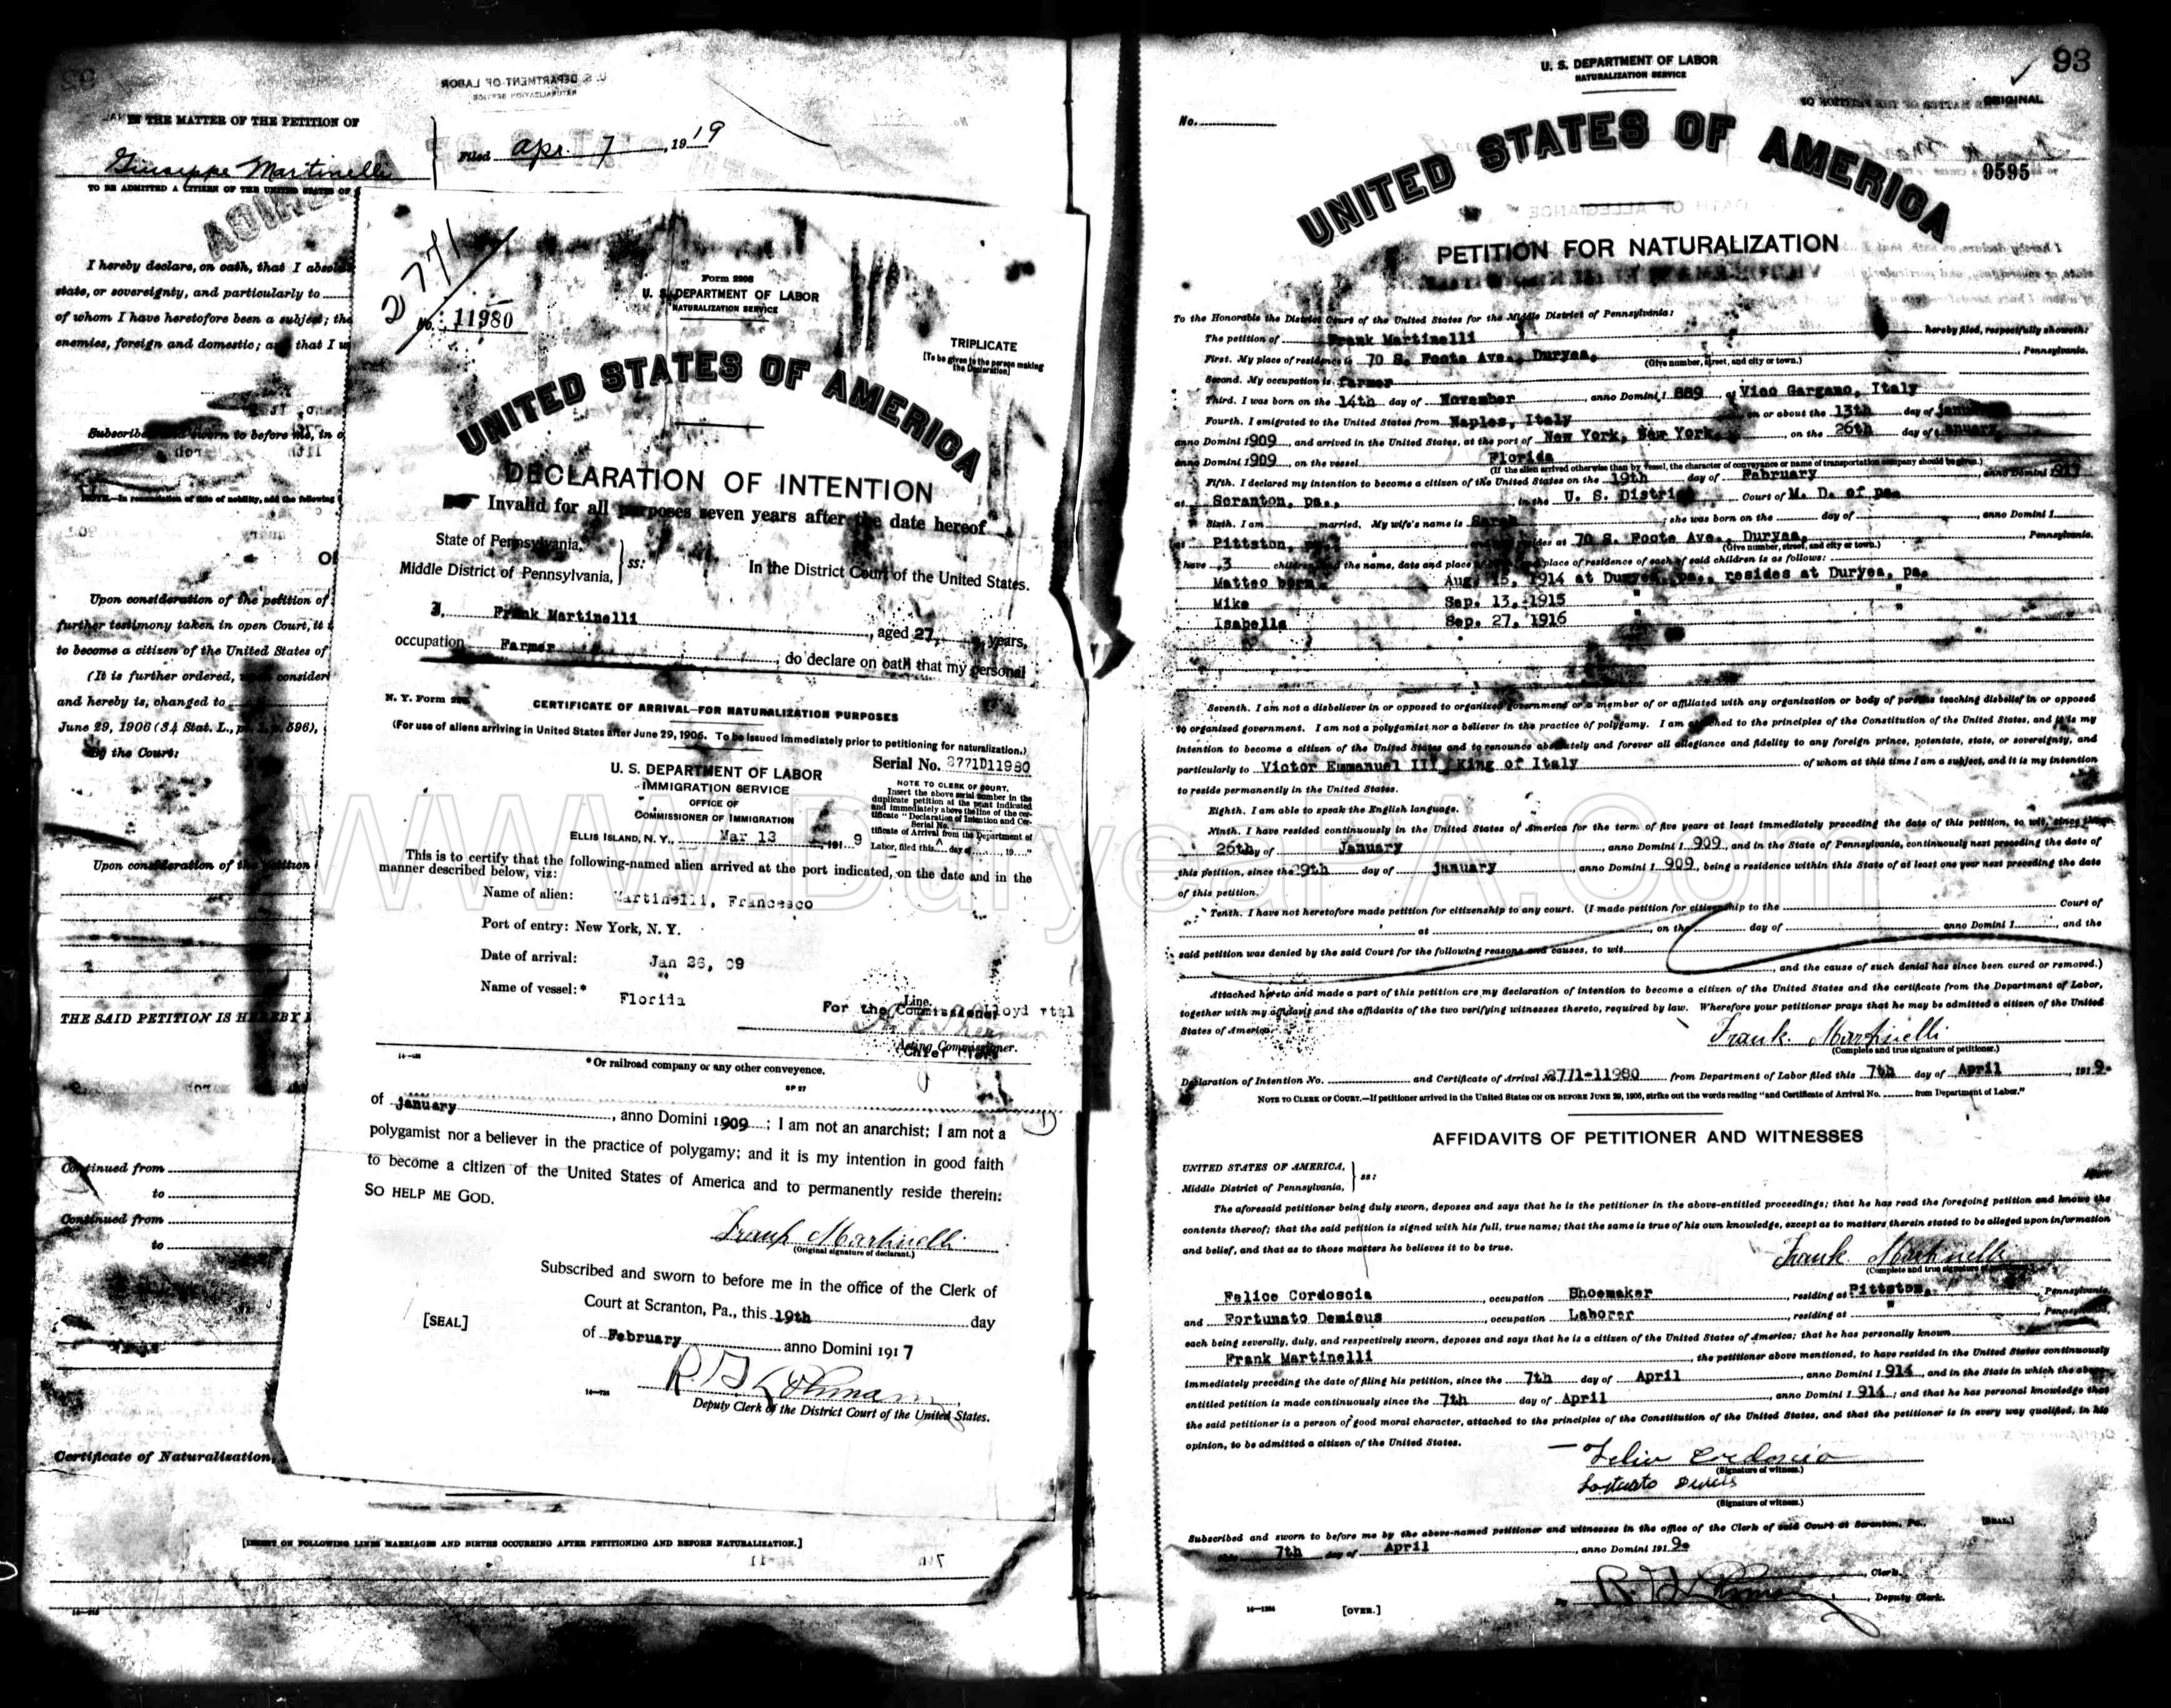 U. S. DEPARTMENT OF LABOR
NATURALIZATION SERVICE
IN THE MATTER OF THE PETITION OF
Giuseppe Martinelli
Filed Apr. 7, 1919
TO BE ADMITTED A CITIZEN OF THE UNITED STATES OF
I hereby declare, on oath, that I
state, or sovereignty, and particularly to
of whom I have heretofore been a subject; the
enemies, foreign and domestic; and that I
to before me, in
Upon consideration of the petition of
further testimony taken in open Court, it
to become a citizen of the United States of
(It is further ordered,
and hereby is, changed to
June 29, 1906 (34 Stat. L., pt. 1, p. 596),
By the Court:
Upon consideration of the petition
THE SAID PETITION IS HEREBY
Continued from
to
Continued from
to
Certificate of Naturalization,
[INSERT ON FOLLOWING LINES MARRIAGES AND BIRTHS OCCURRING AFTER PETITIONING AND BEFORE NATURALIZATION.]
2 771
No. 11980
Form 2203
U. S. DEPARTMENT OF LABOR
NATURALIZATION SERVICE
TRIPLICATE
[To be given to the person making
the Declaration]
UNITED STATES OF AMERICA
DECLARATION OF INTENTION
Invalid for all purposes seven years after the date hereof
State of Pennsylvania,
Middle District of Pennsylvania, } ss:
In the District Court of the United States.
I, Frank Martinelli, aged 27 years,
occupation Farmer, do declare on oath that my personal
N. Y. Form
CERTIFICATE OF ARRIVAL—FOR NATURALIZATION PURPOSES
(For use of aliens arriving in United States after June 29, 1906. To be issued immediately prior to petitioning for naturalization.)
Serial No. 3771D11980
U. S. DEPARTMENT OF LABOR
IMMIGRATION SERVICE
OFFICE OF
COMMISSIONER OF IMMIGRATION
ELLIS ISLAND, N. Y., Mar 13, 1919
NOTE TO CLERK OF COURT.
Insert the above serial number in the
duplicate petition at the point indicated
and immediately above the line of the cer-
tificate "Declaration of Intention and Cer-
Serial No.
tificate of Arrival from the Department of
Labor, filed this day of , 19 "
This is to certify that the following-named alien arrived at the port indicated, on the date and in the
manner described below, viz:
Name of alien: Martinelli, Francesco
Port of entry: New York, N. Y.
Date of arrival: Jan 26, 09
Name of vessel:* Florida Line. Lloyd
For the Commissioner
Acting Commissioner.
Chief Clerk
*Or railroad company or any other conveyence.
of january, anno Domini 1909; I am not an anarchist; I am not a
polygamist nor a believer in the practice of polygamy; and it is my intention in good faith
to become a citizen of the United States of America and to permanently reside therein:
SO HELP ME GOD.
Frank Martinelli
(Original signature of declarant.)
Subscribed and sworn to before me in the office of the Clerk of
Court at Scranton, Pa., this 19th day
[SEAL]
of February anno Domini 1917
Deputy Clerk of the District Court of the United States.
93
U. S. DEPARTMENT OF LABOR
NATURALIZATION SERVICE
ORIGINAL
No.
9595
UNITED STATES OF AMERICA
PETITION FOR NATURALIZATION
To the Honorable the District Court of the United States for the Middle District of Pennsylvania:
The petition of Frank Martinelli hereby filed, respectfully showeth:
First. My place of residence is 70 S. Foote Ave., Duryea, Pennsylvania.
(Give number, street, and city or town.)
Second. My occupation is farmer
Third. I was born on the 14th day of November anno Domini 1 889 at Vico Gargano, Italy
Fourth. I emigrated to the United States from Naples, Italy on or about the 13th day of january
anno Domini 1909, and arrived in the United States, at the port of New York, New York, on the 26th day of january
anno Domini 1909, on the vessel Florida
(If the alien arrived otherwise than by vessel, the character of conveyance or name of transportation company should be given.)
Fifth. I declared my intention to become a citizen of the United States on the 19th day of February, anno Domini 1917
at Scranton, pa., in the U. S. District Court of M. D. of pa.
Sixth. I am married. My wife's name is Sarah; she was born on the day of , anno Domini 1
at Pittston, and resides at 70 S. Foote Ave., Duryea, Pennsylvania.
(Give number, street, and city or town.)
I have 3 children, and the name, date and place of birth, and place of residence of each of said children is as follows:
Matteo born Aug. 15, 1914 at Duryea, pa., resides at Duryea, pa.
Mike Sep. 13, 1915 " "
Isabella Sep. 27, 1916 " "
Seventh. I am not a disbeliever in or opposed to organized government or a member of or affiliated with any organization or body of persons teaching disbelief in or opposed
to organized government. I am not a polygamist nor a believer in the practice of polygamy. I am attached to the principles of the Constitution of the United States, and it is my
intention to become a citizen of the United States and to renounce absolutely and forever all allegiance and fidelity to any foreign prince, potentate, state, or sovereignty, and
particularly to Victor Emmanuel III, King of Italy of whom at this time I am a subject, and it is my intention
to reside permanently in the United States.
Eighth. I am able to speak the English language.
Ninth. I have resided continuously in the United States of America for the term of five years at least immediately preceding the date of this petition, to wit, since the
26th day of January, anno Domini 1 909, and in the State of Pennsylvania, continuously next preceding the date of
this petition, since the 29th day of january anno Domini 1 909, being a residence within this State of at least one year next preceding the date
of this petition.
Tenth. I have not heretofore made petition for citizenship to any court. (I made petition for citizenship to the Court of
at , on the day of anno Domini 1 , and the
said petition was denied by the said Court for the following reasons and causes, to wit
, and the cause of such denial has since been cured or removed.)
Attached hereto and made a part of this petition are my declaration of intention to become a citizen of the United States and the certificate from the Department of Labor,
together with my affidavit and the affidavits of the two verifying witnesses thereto, required by law. Wherefore your petitioner prays that he may be admitted a citizen of the United
States of America.
Frank Martinelli
(Complete and true signature of petitioner.)
Declaration of Intention No. and Certificate of Arrival No 3771-11980 from Department of Labor filed this 7th day of April 1919.
NOTE TO CLERK OF COURT.—If petitioner arrived in the United States ON OR BEFORE JUNE 29, 1906, strike out the words reading "and Certificate of Arrival No. from Department of Labor."
AFFIDAVITS OF PETITIONER AND WITNESSES
UNITED STATES OF AMERICA,
Middle District of Pennsylvania, } ss:
The aforesaid petitioner being duly sworn, deposes and says that he is the petitioner in the above-entitled proceedings; that he has read the foregoing petition and knows the
contents thereof; that the said petition is signed with his full, true name; that the same is true of his own knowledge, except as to matters therein stated to be alleged upon information
and belief, and that as to those matters he believes it to be true.
Frank Martinelli
(Complete and true signature
Felice Cordoscia, occupation Shoemaker, residing at Pittston, Pennsylvania,
and Fortunato Demicus, occupation Laborer, residing at " Pennsylvania,
each being severally, duly, and respectively sworn, deposes and says that he is a citizen of the United States of America; that he has personally known
Frank Martinelli, the petitioner above mentioned, to have resided in the United States continuously
immediately preceding the date of filing his petition, since the 7th day of April, anno Domini 1 914, and in the State in which the above-
entitled petition is made continuously since the 7th day of April, anno Domini 1 914; and that he has personal knowledge that
the said petitioner is a person of good moral character, attached to the principles of the Constitution of the United States, and that the petitioner is in every way qualified, in his
opinion, to be admitted a citizen of the United States.
(Signature of witness.)
(Signature of witness.)
Subscribed and sworn to before me by the above-named petitioner and witnesses in the office of the Clerk of said Court at Scranton, Pa., [SEAL.]
this 7th day of April, anno Domini 1919.
, Clerk.
, Deputy Clerk.
[OVER.]
www.DuryeaPA.com